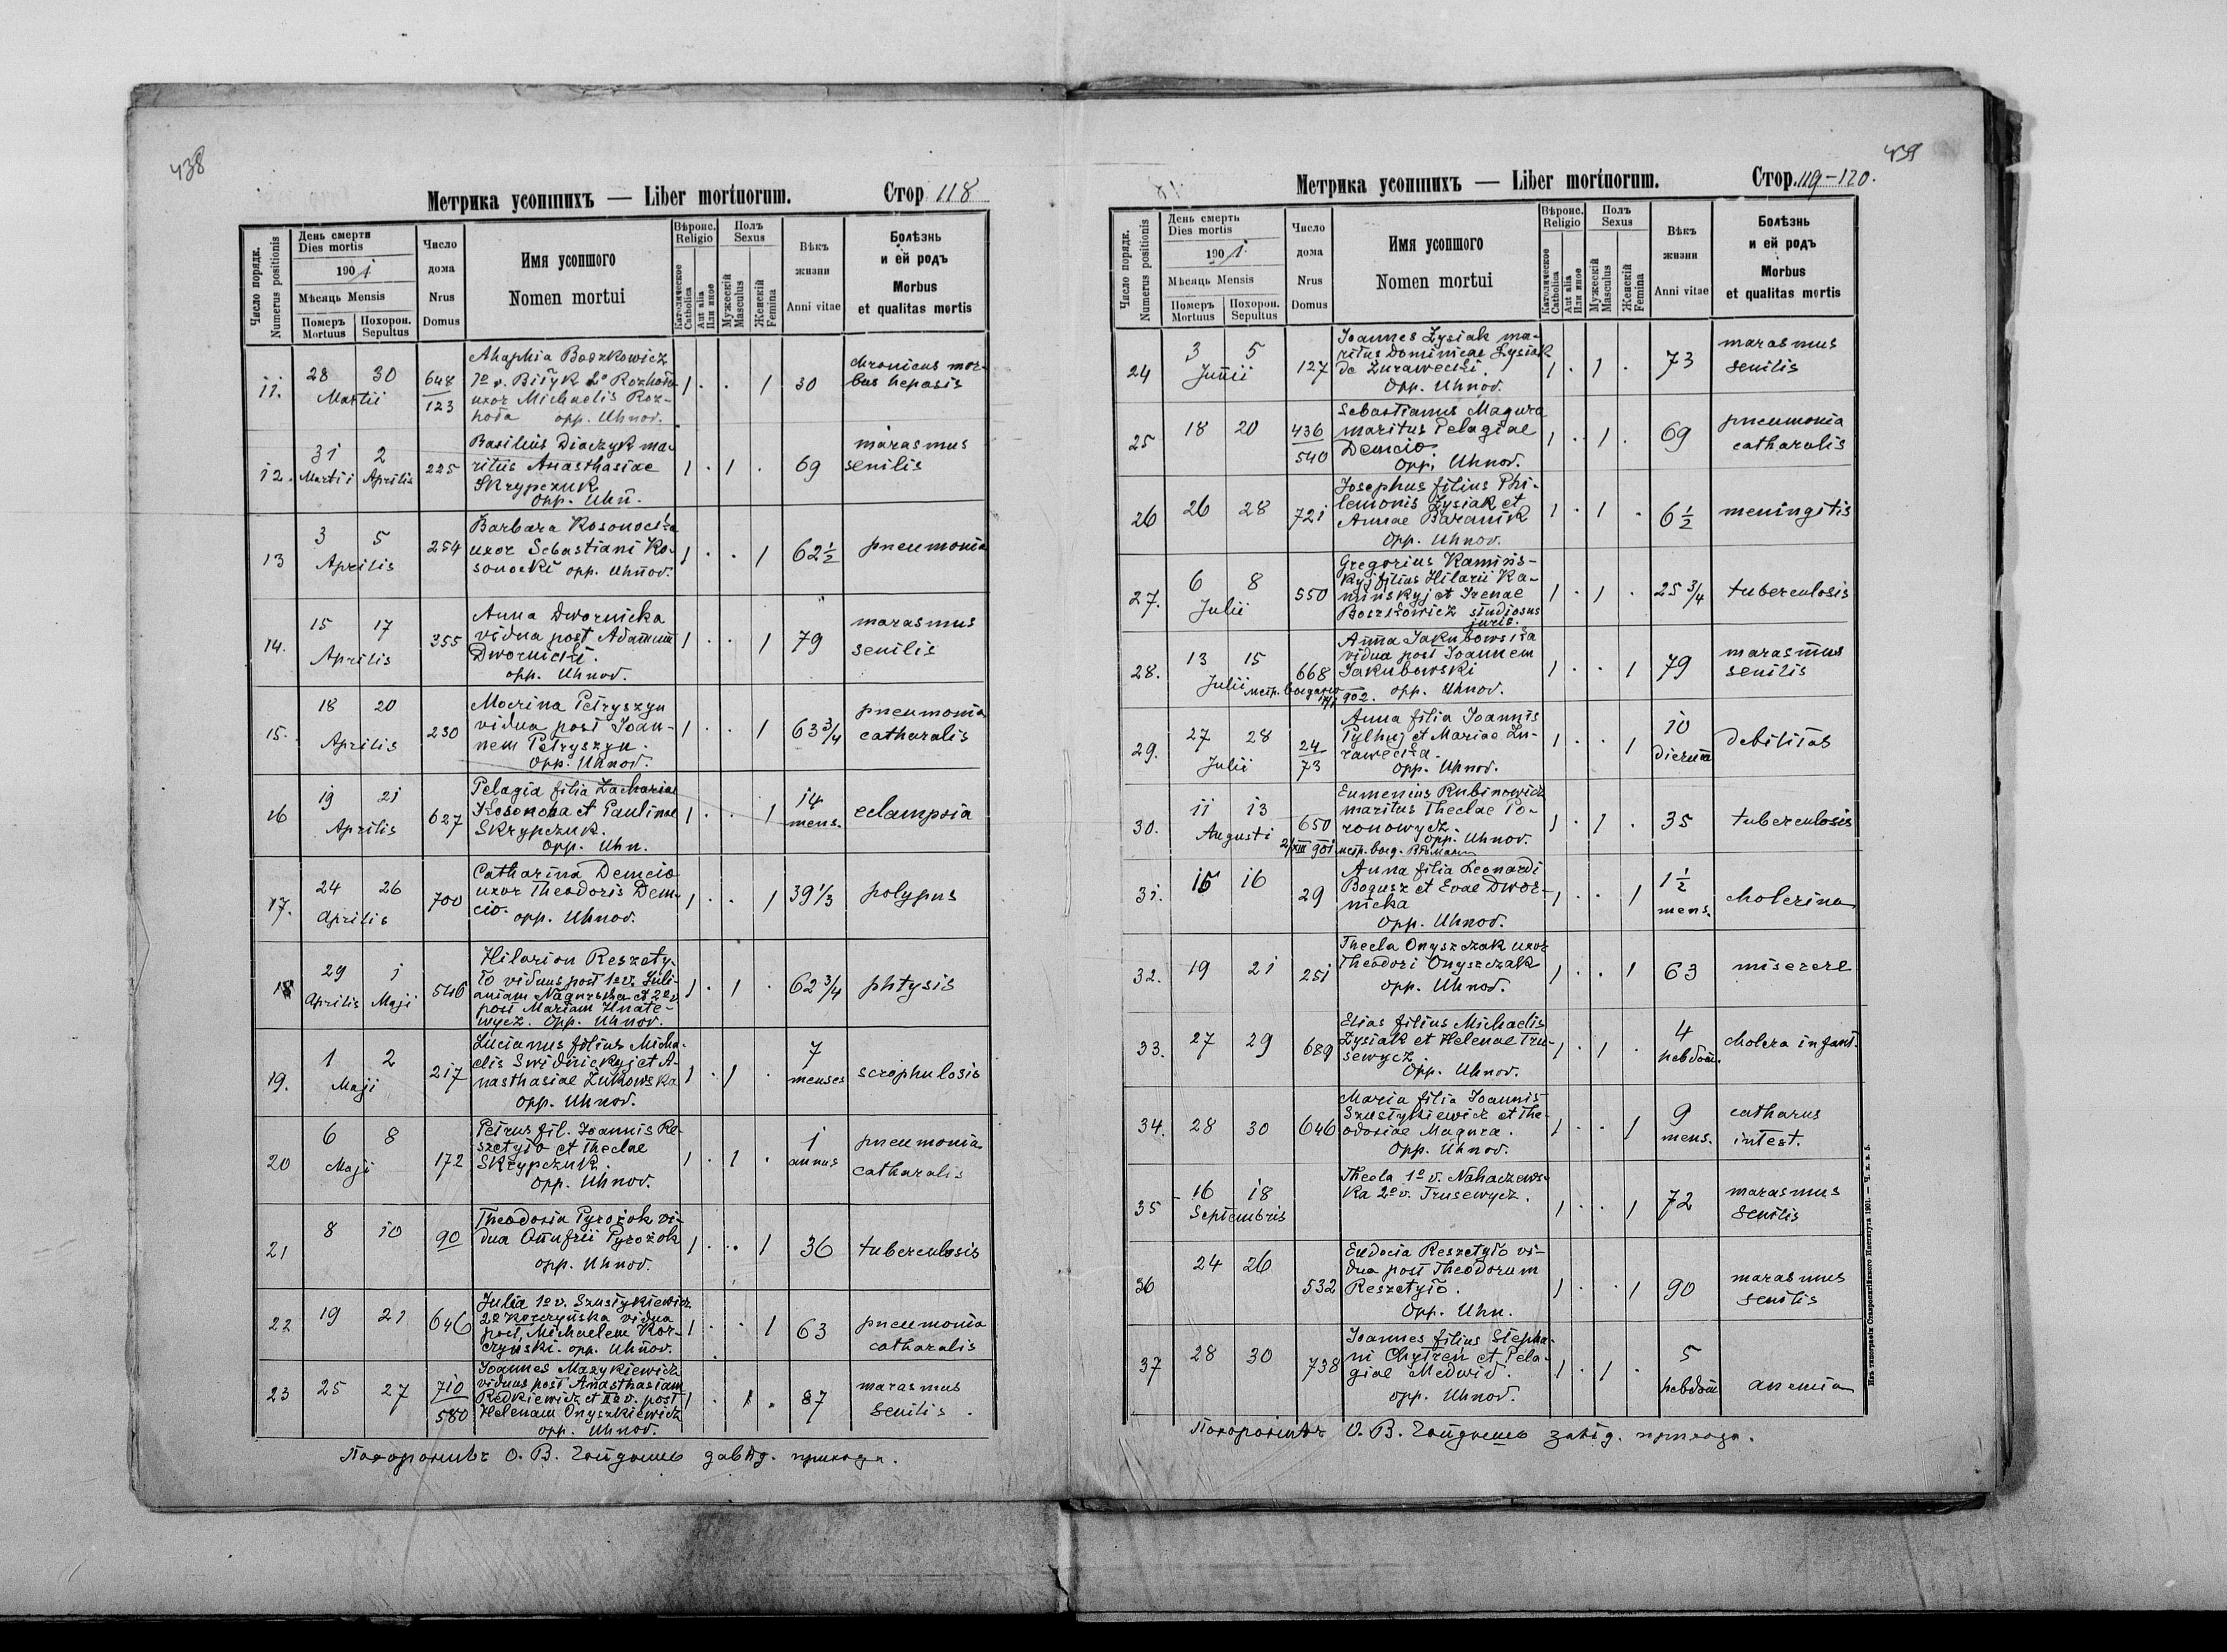 438
Метрика усопшихъ — Liber mortuorum.
Стор 118
Число порядк.
Numerus positionis
День смерти
Dies mortis
1901
Мѣсяць Mensis
Померъ Mortuus
Похорон. Sepultus
Число дома
Nrus Domus
Имя усопшого
Nomen mortui
Вѣроис.
Religio
Католическое
Catholica
Aut alia
Или иное
Полъ
Sexus
Мужескій
Masculus
Женскій
Femina
Вѣкъ жизни
Anni vitae
Болѣзнь
и ей родъ
Morbus
et qualitas mortis
11. 28 30 Martii 648/123
Ahaphia Boszkowicz
uxor Michaelis Roz-
hoda opp. Uhnov.
1 . . 1 30
chronicus mor-
bus hepasis
12. 31 Martii 2 Aprilis 225
Basilius Diaczyk ma-
ritus Anasthasiae
Skrypczuk
opp. Uhn.
1 . 1 . 69
marasmus
senilis
13 3 5 Aprilis 254
Barbara Kosonocka
uxor Sebastiani Ko-
sonocki opp. Uhnov.
1 . . 1 62 1/2
pneumonia
14. 15 17 Aprilis 355
Anna Dwornicka
vidua post Adamum
Dwornicki.
opp. Uhnov.
1 . . 1 79
marasmus
senilis
15. 18 20 Aprilis 230
Mocrina Petryszyn
vidua post Joan-
nem Petryszyn.
Opp. Uhnov.
1 . . 1 63 3/4
pneumonia
catharalis
16 19 21 Aprilis 627
Pelagia filia Zachariae
et Paulinae
Skrypczuk.
Opp. Uhn.
1 . . 1 14 mens.
eclampsia
17. 24 26 Aprilis 700
Catharina Demcio
uxor Theodoris Dem-
cio. opp. Uhnov.
1 . . 1 39 1/3
polypus
18 29 Aprilis 1 Maji 546
Hilarion Reszety-
ło viduus post 1o v. Juli-
aniam Nagurska et 2o v.
post Mariam Hnate-
wycz. Opp. Uhnov.
1 . 1 . 62 3/4
phtysis
19. 1 2 Maji 217
Lucianus filius Micha-
elis Swidnickyj et A-
nasthasiae Zukowska
Opp. Uhnov.
1 . 1 . 7 menses
scrophulosis
20 6 8 Maji 172
Petrus fil. Joannis Re-
szetyło et Theclae
Skrypczuk.
opp. Uhnov.
1 . 1 . 1 annus
pneumonia
catharalis
21 8 10 90
Theodosia Pyrożok vi-
dua Onufrii Pyrożok
opp. Uhnov.
1 . . 1 36
tuberculosis
22 19 21 646
Julia 1o v. Szustykiewicz
2o Korczyńska vidua
post Michaelem Kor-
czynski. opp. Uhnov.
1 . . 1 63
pneumonia
catharalis
23 25 27 710/580
Joannes Mazykiewicz
viduus post Anasthasiam
Redkiewicz et IIo v. post
Helenam Onyszkiewicz
opp. Uhnov.
1 . 1 . 87
marasmus
senilis.
439
Метрика усопшихъ — Liber mortuorum.
Стор. 119-120.
Число порядк.
Numerus positionis
День смерти
Dies mortis
1901
Мѣсяць Mensis
Померъ Mortuus
Похорон. Sepultus
Число дома
Nrus Domus
Имя усопшого
Nomen mortui
Вѣроис.
Religio
Католическое
Catholica
Aut alia
Или иное
Полъ
Sexus
Мужескій
Masculus
Женскій
Femina
Вѣкъ жизни
Anni vitae
Болѣзнь
и ей родъ
Morbus
et qualitas mortis
24 3 5 Junii 127
Joannes Zysiak ma-
ritus Dominicae Zysiak
de Żurawecki.
Opp. Uhnov.
1 . 1 . 73
marasmus
senilis
25 18 20 436/540
Sebastianus Magura
maritus Pelagiae
Demcio.
Opp. Uhnov.
1 . 1 . 69
pneumonia
catharalis
26 26 28 721
Josephus filius Phi-
lemonis Zysiak et
Annae Baranik
Opp. Uhnov.
1 . 1 . 6 1/2
meningitis
27. 6 8 Julii 550
Gregorius Kamins-
kyj filius Hilarii Ka-
minskyj et Irenae
Boszkowicz studiosus
juris.
1 . 1 . 25 3/4
tuberculosis
28. 13 15 Julii 668
Anna Jakubowska
vidua post Joannem
Jakubowski
opp. Uhnov.
1 . . 1 79
marasmus
senilis
902.
29. 27 28 Julii 24/73
Anna filia Joannis
Pylhuj et Mariae Zu-
rawecka.
Opp. Uhnov.
1 . . 1 10 dierum
debilitas
30. 11 13 Augusti 650
Eumenius Rubinowicz
maritus Theclae Po-
ronowycz.
Opp. Uhnov.
1 . 1 . 35
tuberculosis
31. 15 16 29
Anna filia Leonardi
Bogusz et Evae Dwor-
nicka
Opp. Uhnov.
1 . . 1 1 1/2 mens.
cholerina
32. 19 21 251
Thecla Onyszczak uxor
Theodori Onyszczak
opp. Uhnov.
1 . . 1 63
miserere
33. 27 29 689
Elias filius Michaelis
Zysiak et Helenae Tru-
sewycz.
Opp. Uhnov.
1 . 1 . 4 hebdom.
cholera infant.
34. 28 30 646
Maria filia Joannis
Szustykiewicz et The-
odosiae Magura.
Opp. Uhnov.
1 . . 1 9 mens.
catharus
intest.
35 16 18 Septembris
Thecla 1o v. Nahaczews-
ka 2o v. Trusewycz.
1 . . 1 72
marasmus
senilis
36 24 26 532
Eudocia Reszetyło vi-
dua post Theodorum
Reszetyło.
Opp. Uhn.
1 . . 1 90
marasmus
senilis
37 28 30 738
Joannes filius Stepha-
ni Chytreń et Pela-
giae Medwid.
opp. Uhnov.
1 . 1 . 5 hebdom
anemia
Изъ типографіи Ставропигійского Института 1901. — Ч. х. з. 5.